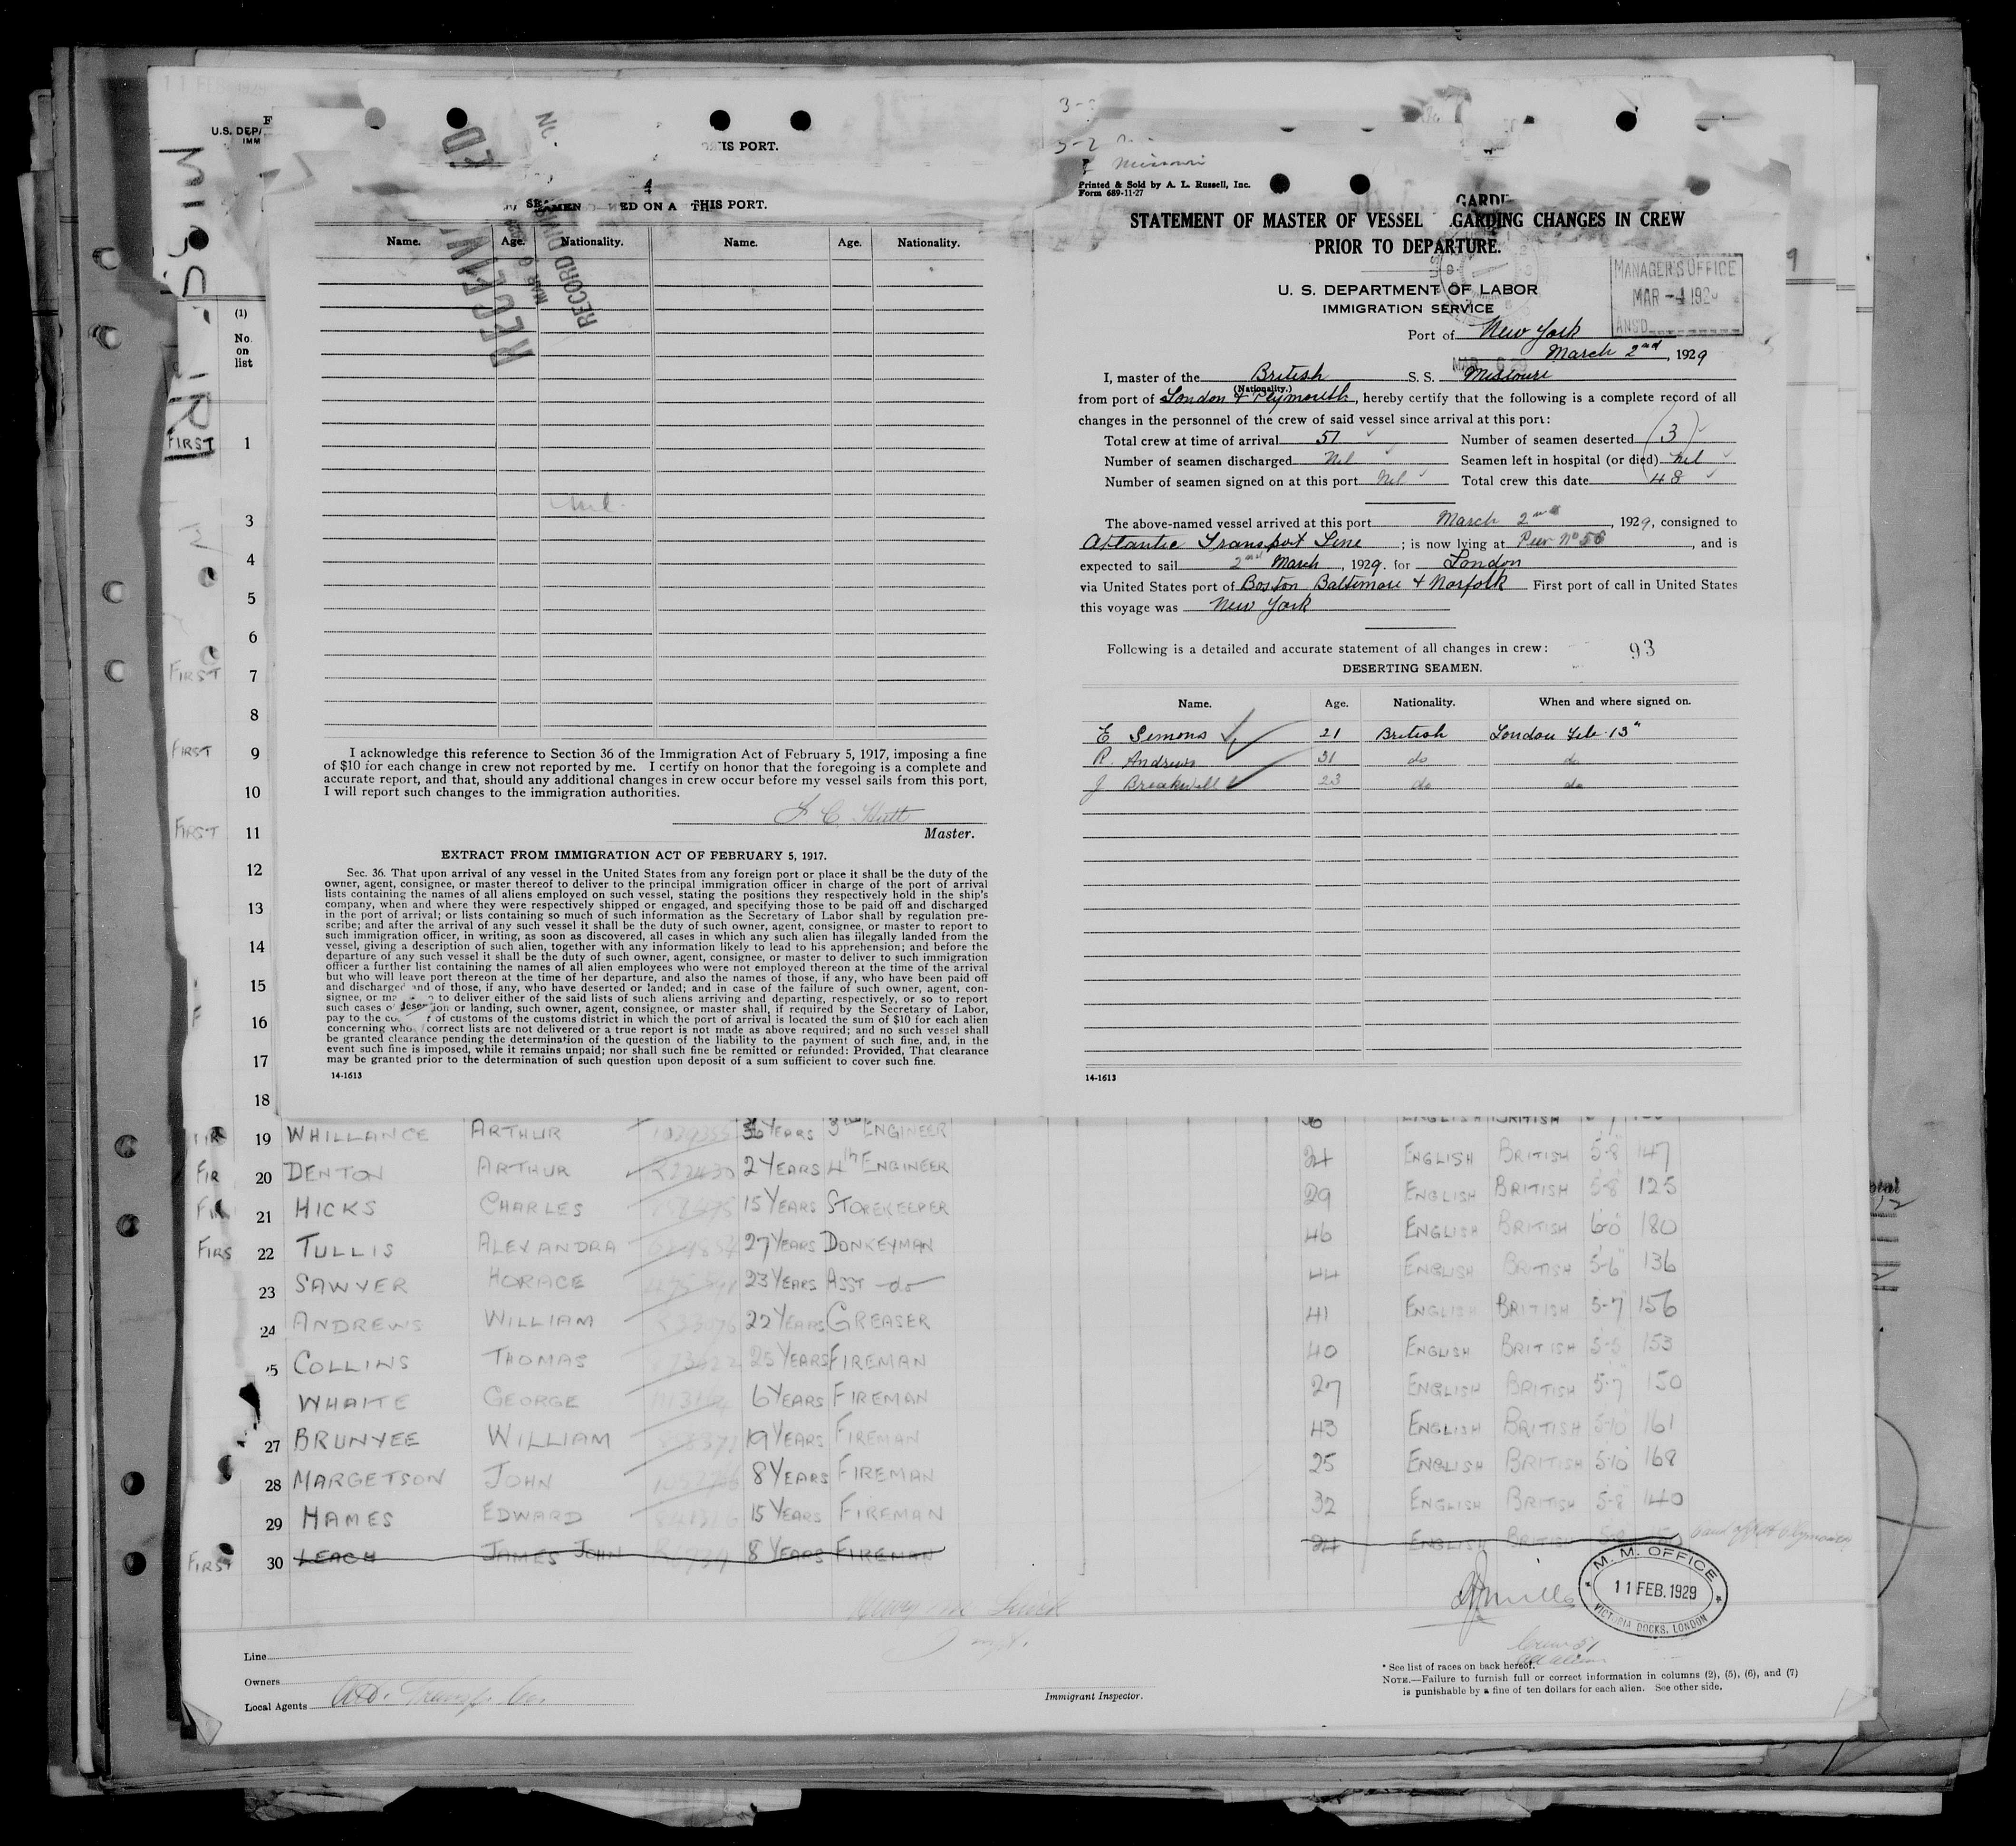 11 FEB 1929
U.S. DEPA
IMM
MISS
(1)
No.
on
list
FIRST 1
3
4
5
6
FIRST 7
8
FIRST 9
10
FIRST 11
12
13
14
15
16
17
18
IS PORT.
RECEIV
ED
RECORD DIVIS
SEAMEN NED ON A THIS PORT.
Name. Age. Nationality. Name. Age. Nationality.
Nil
I acknowledge this reference to Section 36 of the Immigration Act of February 5, 1917, imposing a fine
of $10 for each change in crew not reported by me. I certify on honor that the foregoing is a complete and
accurate report, and that, should any additional changes in crew occur before my vessel sails from this port,
I will report such changes to the immigration authorities.
Master.
EXTRACT FROM IMMIGRATION ACT OF FEBRUARY 5, 1917.
Sec. 36. That upon arrival of any vessel in the United States from any foreign port or place it shall be the duty of the
owner, agent, consignee, or master thereof to deliver to the principal immigration officer in charge of the port of arrival
lists containing the names of all aliens employed on such vessel, stating the positions they respectively hold in the ship's
company, when and where they were respectively shipped or engaged, and specifying those to be paid off and discharged
in the port of arrival; or lists containing so much of such information as the Secretary of Labor shall by regulation pre-
scribe; and after the arrival of any such vessel it shall be the duty of such owner, agent, consignee, or master to report to
such immigration officer, in writing, as soon as discovered, all cases in which any such alien has illegally landed from the
vessel, giving a description of such alien, together with any information likely to lead to his apprehension; and before the
departure of any such vessel it shall be the duty of such owner, agent, consignee, or master to deliver to such immigration
officer a further list containing the names of all alien employees who were not employed thereon at the time of the arrival
but who will leave port thereon at the time of her departure, and also the names of those, if any, who have been paid off
and discharged and of those, if any, who have deserted or landed; and in case of the failure of such owner, agent, con-
signee, or ma to deliver either of the said lists of such aliens arriving and departing, respectively, or so to report
such cases o desertion or landing, such owner, agent, consignee, or master shall, if required by the Secretary of Labor,
pay to the co r of customs of the customs district in which the port of arrival is located the sum of $10 for each alien
concerning who correct lists are not delivered or a true report is not made as above required; and no such vessel shall
be granted clearance pending the determination of the question of the liability to the payment of such fine, and, in the
event such fine is imposed, while it remains unpaid; nor shall such fine be remitted or refunded: Provided, That clearance
may be granted prior to the determination of such question upon deposit of a sum sufficient to cover such fine.
14-1613
Missouri
Printed & Sold by A. L. Russell, Inc.
Form 689-11-27
GARDI
STATEMENT OF MASTER OF VESSEL GARDING CHANGES IN CREW
PRIOR TO DEPARTURE.
U. S. DEPARTMENT OF LABOR
IMMIGRATION SERVICE
MANAGER'S OFFICE
MAR -4 1929
ANS'D
Port of New York
March 2nd, 1929
I, master of the British S. S. Missouri
(Nationality.)
from port of London & Plymouth, hereby certify that the following is a complete record of all
changes in the personnel of the crew of said vessel since arrival at this port:
Total crew at time of arrival 51 Number of seamen deserted (3)
Number of seamen discharged Nil Seamen left in hospital (or died) Nil
Number of seamen signed on at this port Nil Total crew this date 48
The above-named vessel arrived at this port March 2nd, 1929, consigned to
Atlantic Transport Line; is now lying at Pier No 58, and is
expected to sail 2nd March, 1929. for London
via United States port of Boston Baltimore & Norfolk First port of call in United States
this voyage was New York
Following is a detailed and accurate statement of all changes in crew: 93
DESERTING SEAMEN.
Name. Age. Nationality. When and where signed on.
E Simons 21 British London Feb. 13"
R. Andrews 31 do do
J Breakwell 23 do do
14-1613
19 WHILLANCE ARTHUR 36 YEARS 3rd ENGINEER
20 DENTON ARTHUR 2 YEARS 4th ENGINEER 24 ENGLISH BRITISH 5-8 147
21 HICKS CHARLES 15 YEARS STOREKEEPER 29 ENGLISH BRITISH 5-8 125
FIRS 22 TULLIS ALEXANDRA 27 YEARS DONKEYMAN 46 ENGLISH BRITISH 6-0 180
23 SAWYER HORACE 23 YEARS ASST -do- 44 ENGLISH BRITISH 5-6 136
24 ANDREWS WILLIAM 22 YEARS GREASER 41 ENGLISH BRITISH 5-7 156
25 COLLINS THOMAS 25 YEARS FIREMAN 40 ENGLISH BRITISH 5-5 153
WHAITE GEORGE 6 YEARS FIREMAN 27 ENGLISH BRITISH 5-7 150
27 BRUNYEE WILLIAM 19 YEARS FIREMAN 43 ENGLISH BRITISH 5-10 161
28 MARGETSON JOHN 8 YEARS FIREMAN 25 ENGLISH BRITISH 5-10 168
29 HAMES EDWARD 15 YEARS FIREMAN 32 ENGLISH BRITISH 5-8 140
FIRST 30 LEACH JAMES JOHN 8 YEARS FIREMAN 24 ENGLISH BRITISH
M. M. OFFICE
11 FEB. 1929
VICTORIA DOCKS, LONDON
Line
Owners
Local Agents
Immigrant Inspector.
* See list of races on back hereof.
NOTE.—Failure to furnish full or correct information in columns (2), (5), (6), and (7)
is punishable by a fine of ten dollars for each alien. See other side.